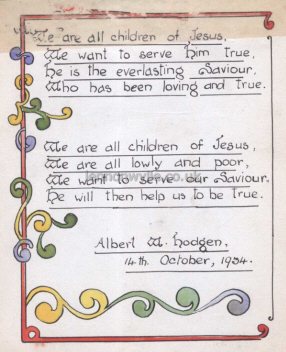 We are all children of Jesus,
We want to serve Him true,
He is the everlasting Saviour,
Who has been loving and true.
We are all children of Jesus,
We are all lowly and poor,
We want to serve our Saviour.
He will then help us to be true.
Albert W. Hodgen,
14th. October, 1934.